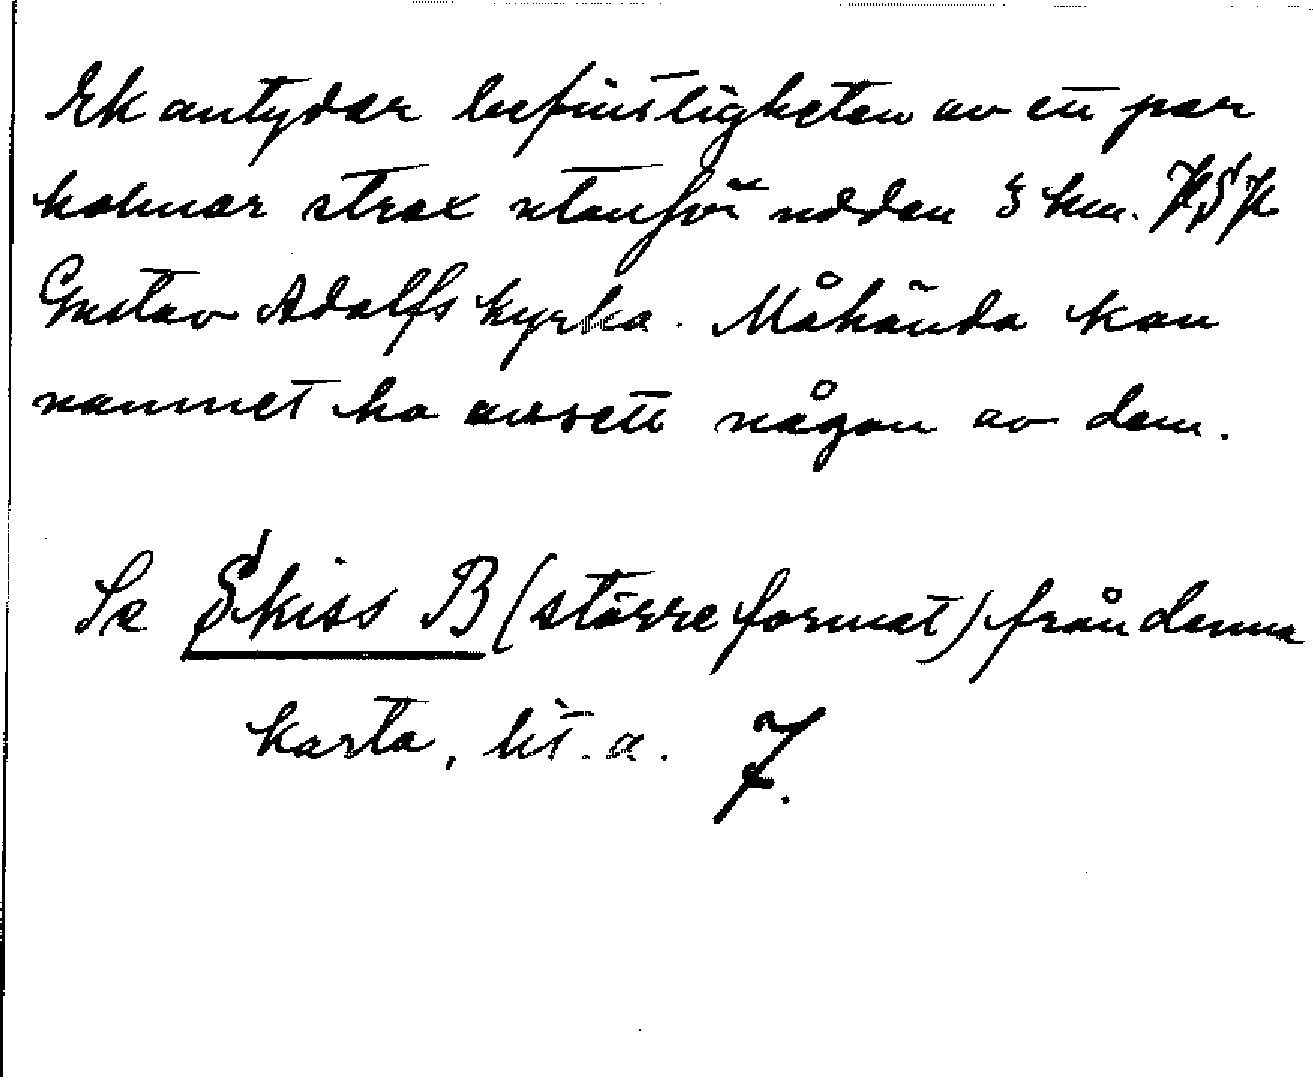 Ek antyder befintligheten av ett par
holmar strax utanför udden 3 km. NSN
Gustav Adolfs kyrka. Måhända kan
namnet ha avsett någon av dem.
Se Skiss B (större format) från denna
karta, lit. a. 7.